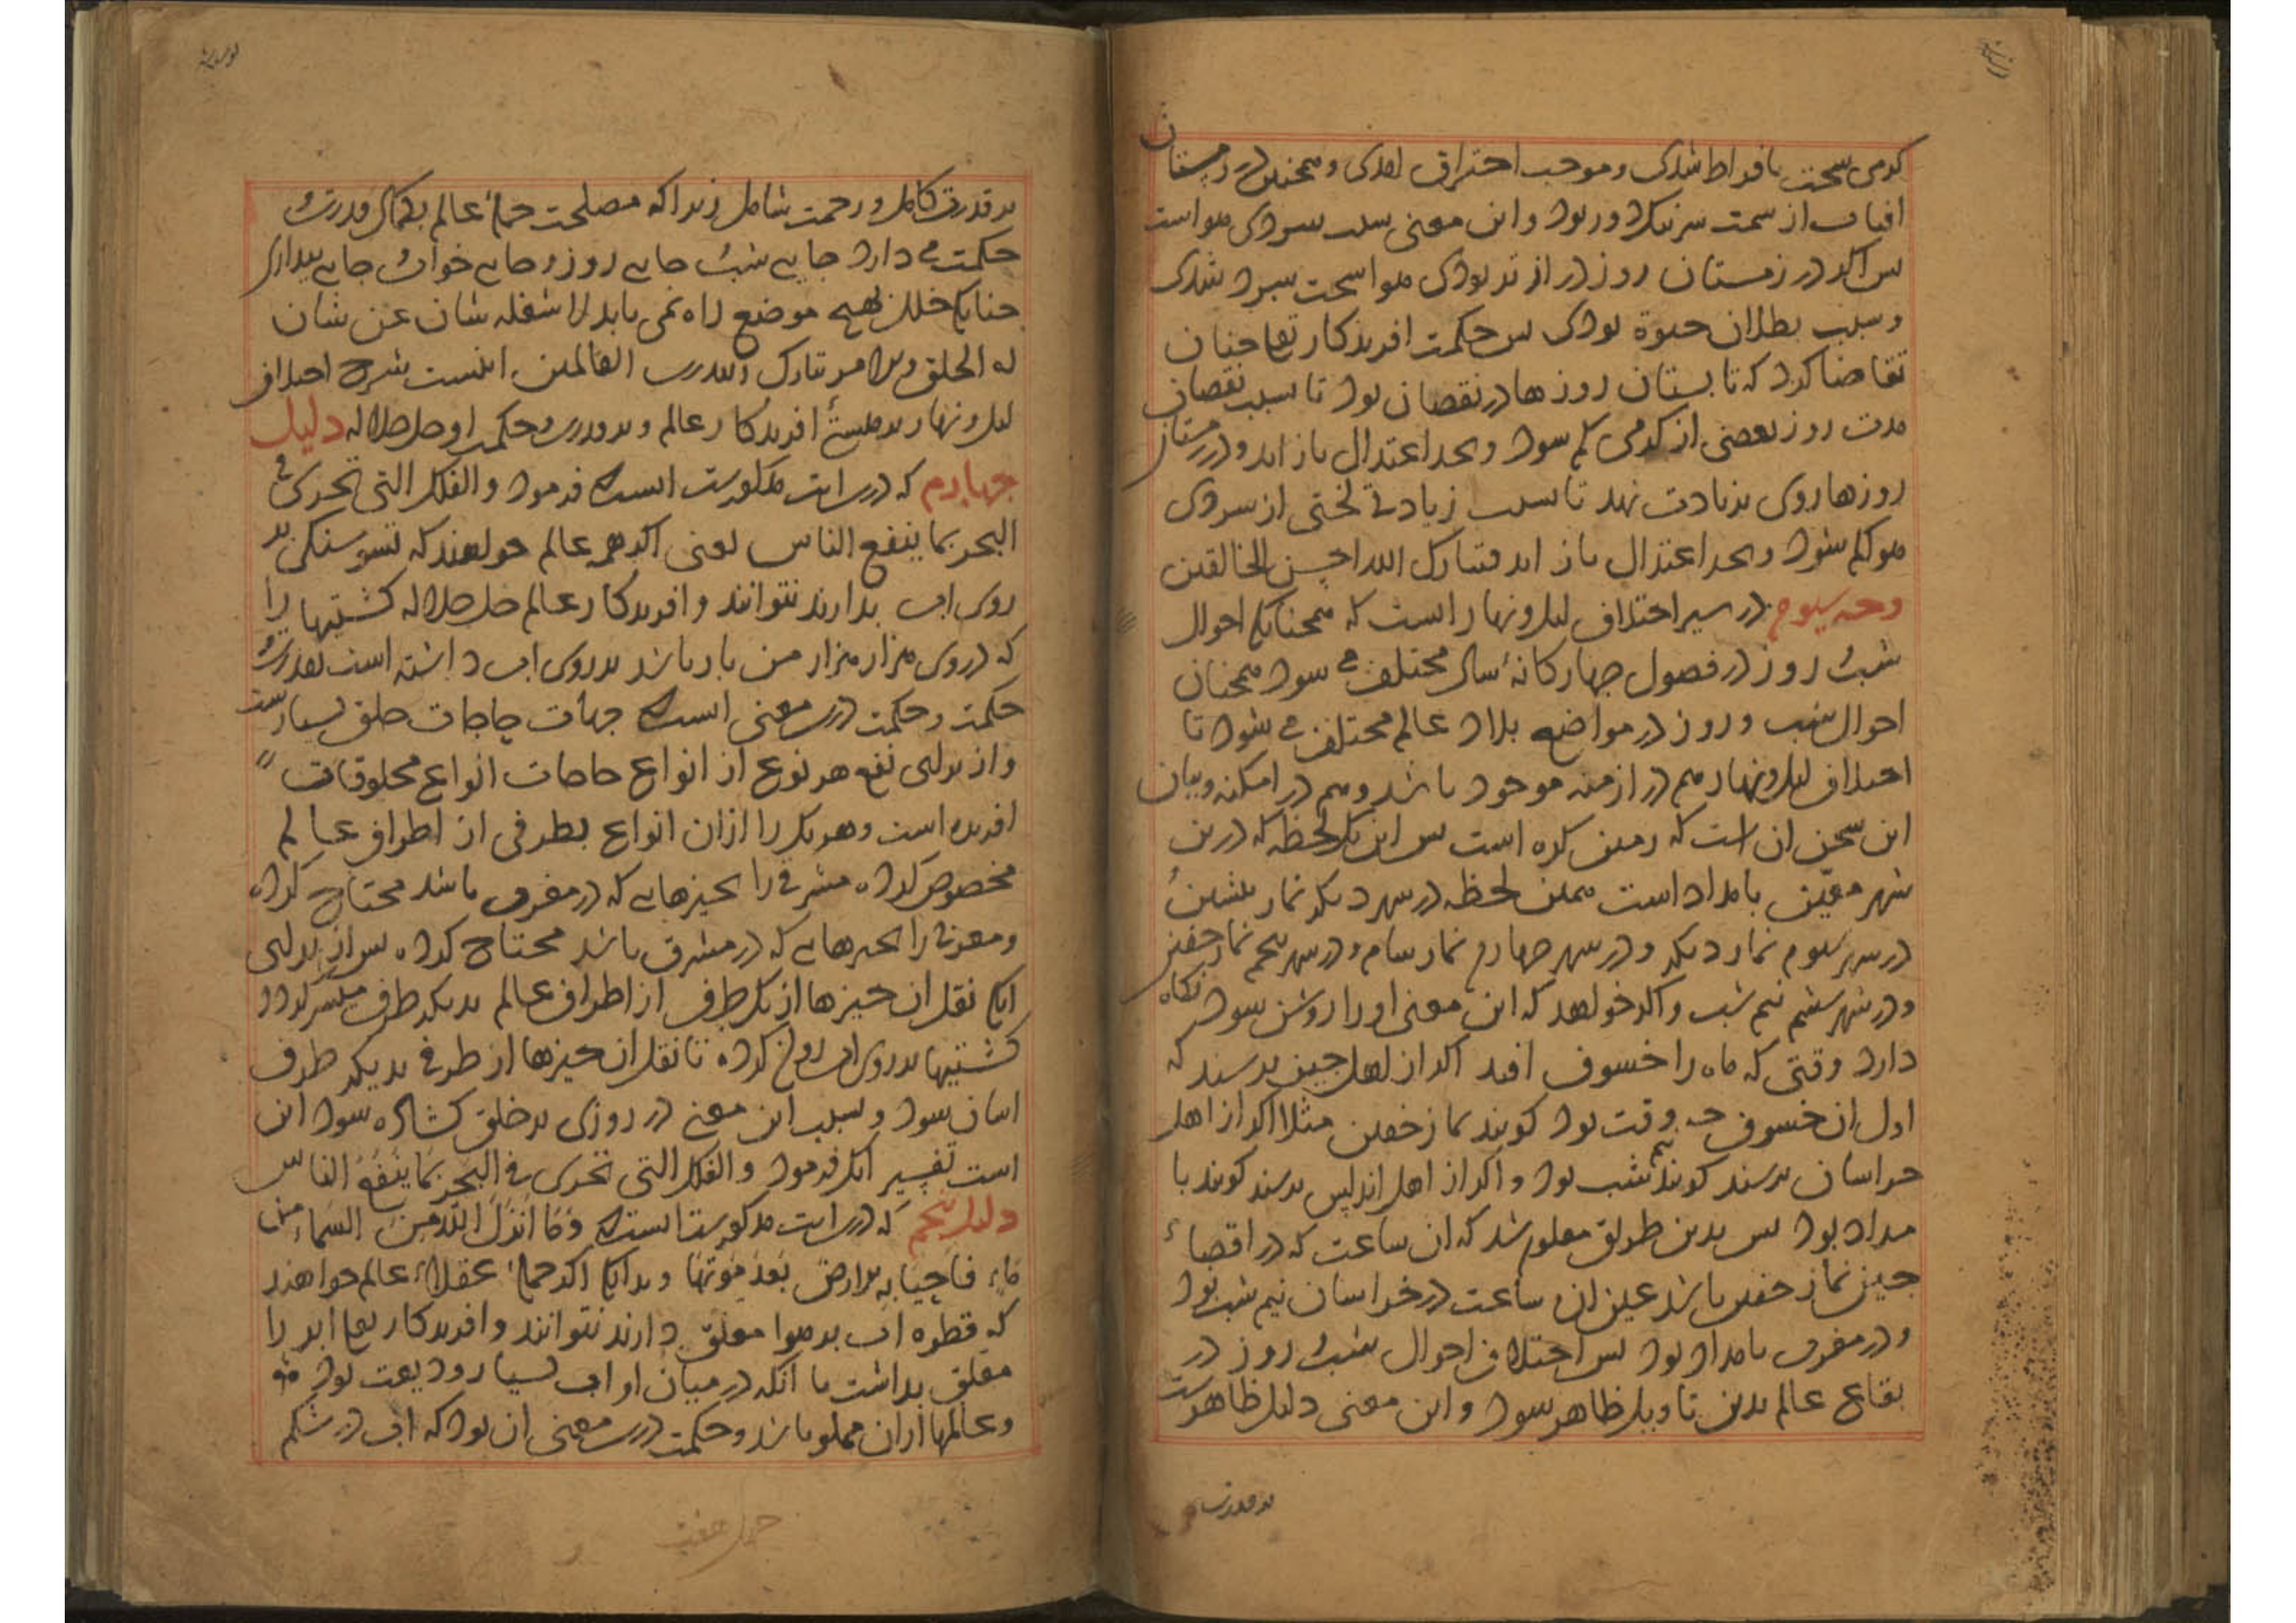 کرمی سخت بافراط شدی و موجب احتراق امدی و همچنین در زمستان
افتاب از سمت سر نیک دور بود و این معنی سبب سردی هوا است
پس اکر در زمستان روز دراز تر بودی هوا سخت سرد شدی
و سبب بطلان حیوة بودی پس حکمت افریدکار تعا چنان
تقاضا کرد که تابستان روزها در نقصان بود تا سبب نقصان
مدت روز بعضی از کرمی کم شود و بحد اعتدال باز اید و در زمستان
روزها روی بزیادت نهد تا سبب زیادتی لختی از سردی
هوا کم شود و بحد اعتدال باز اید فتبارک الله احسن الخالقین
وجه سیوم در سیر اختلاف لیل و نهار است که همچنانکه احوال
شب و روز در فصول چهارکانهٔ سال مختلف می شود همچنان
احوال شب و روز در مواضع بلاد عالم مختلف می شود تا
اختلاف لیل و نهار هم در ازمنه موجود باشد و هم در امکنه و بیان
این سخن ان است که زمین کره است پس این یک لحظه که درین
شهر معین بامداد است همین لحظه در شهر دیکر نماز پیشین
در شهر سیوم نماز دیکر و در شهر چهارم نماز شام و در شهر پنجم نماز خفتن
و در شهر ششم نیم شب و اکر خواهد که این معنی او را روشن شود نکاه
دارد وقتی که ماه را خسوف افتد اکر از اهل چین پرسند که
اول ان خسوف چه وقت بود کویند نماز خفتن مثلا اکر از اهل
خراسان پرسند کویند نیم شب بود و اکر از اهل اندلس پرسند کویند با
مداد بود پس بدین طریق معلوم شد که ان ساعت که در اقصاء
چین نماز خفتن باشد عین ان ساعت در خراسان نیم شب بود
و در مغرب بامداد بود پس اختلاف احوال شب و روز در
بقاع عالم بدین تاویل ظاهر شود و این معنی دلیل ظاهرست
بر قدرت
بر قدرت کامل و رحمت شامل زیرا که مصلحت جملهٔ عالم بکمال قدرت و
حکمت می دارد جایی شب و جایی روز و جایی خواب و جایی بیداری
چنانکه خلل بهیچ موضع راه نمی یابد لا اشغله شان عن شان
له الخلق والامر تبارک الله رب العالمین اینست شرح اختلاف
لیل و نهار بر هستیٔ افریدکار عالم و بر قدرت و حکمت او جل جلاله دلیل
چهارم که درین ایت مذکورست اینست که فرمود والفلک التی تجری فی
البحر بما ینفع الناس یعنی اکر همه عالم خواهند که سنکی بر
روی اب بدارند نتوانند و افریدکار عالم جل جلاله کشتیها را
که در وی هزار هزار من بار باشد بر روی اب داشته است بقدرت و
حکمت و حکمت درین معنی اینست که جهات حاجات خلق بسیارست
و از برای نفع هر نوع از انواع حاجات انواع مخلوقات
افریده است و هر یک را ازان انواع بطرفی از اطراف عالم
مخصوص کرده مشرقی را بچیزهایی که در مغرب باشد محتاج کرده
و مغربی را بچیزهایی که در مشرق باشد محتاج کرده پس از برای
انکه نقل ان چیزها از یک طرف از اطراف عالم بدیکر طرف میسر کردد
کشتیها بر روی اب روان کرده تا نقل ان چیزها از طرفی بدیکر طرف
اسان شود و بسبب این معنی در روزی بر خلق کشاده شود این
است تفسیر انکه فرمود والفلک التی تجری فی البحر بما ینفع الناس
دلیل پنجم که درین ایت مذکورست اینست که وَمَا اَنْزَلَ اللّٰه مِنَ السَّماء من
مَاء فاحیا به الارض بَعْدَ مَوْتِهَا و بدانکه اکر جملهٔ عقلاء عالم خواهند
که قطره اب بر هوا معلق دارند نتوانند و افریدکار تعا ابر را
معلق بداشت با انکه در میان او اب بسیار ودیعت بود
و عالمها ازان مملو باشد و حکمت درین معنی ان بود که اب در شکم